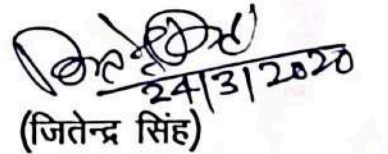 24/3/2020
(जितेन्द्र सिंह)